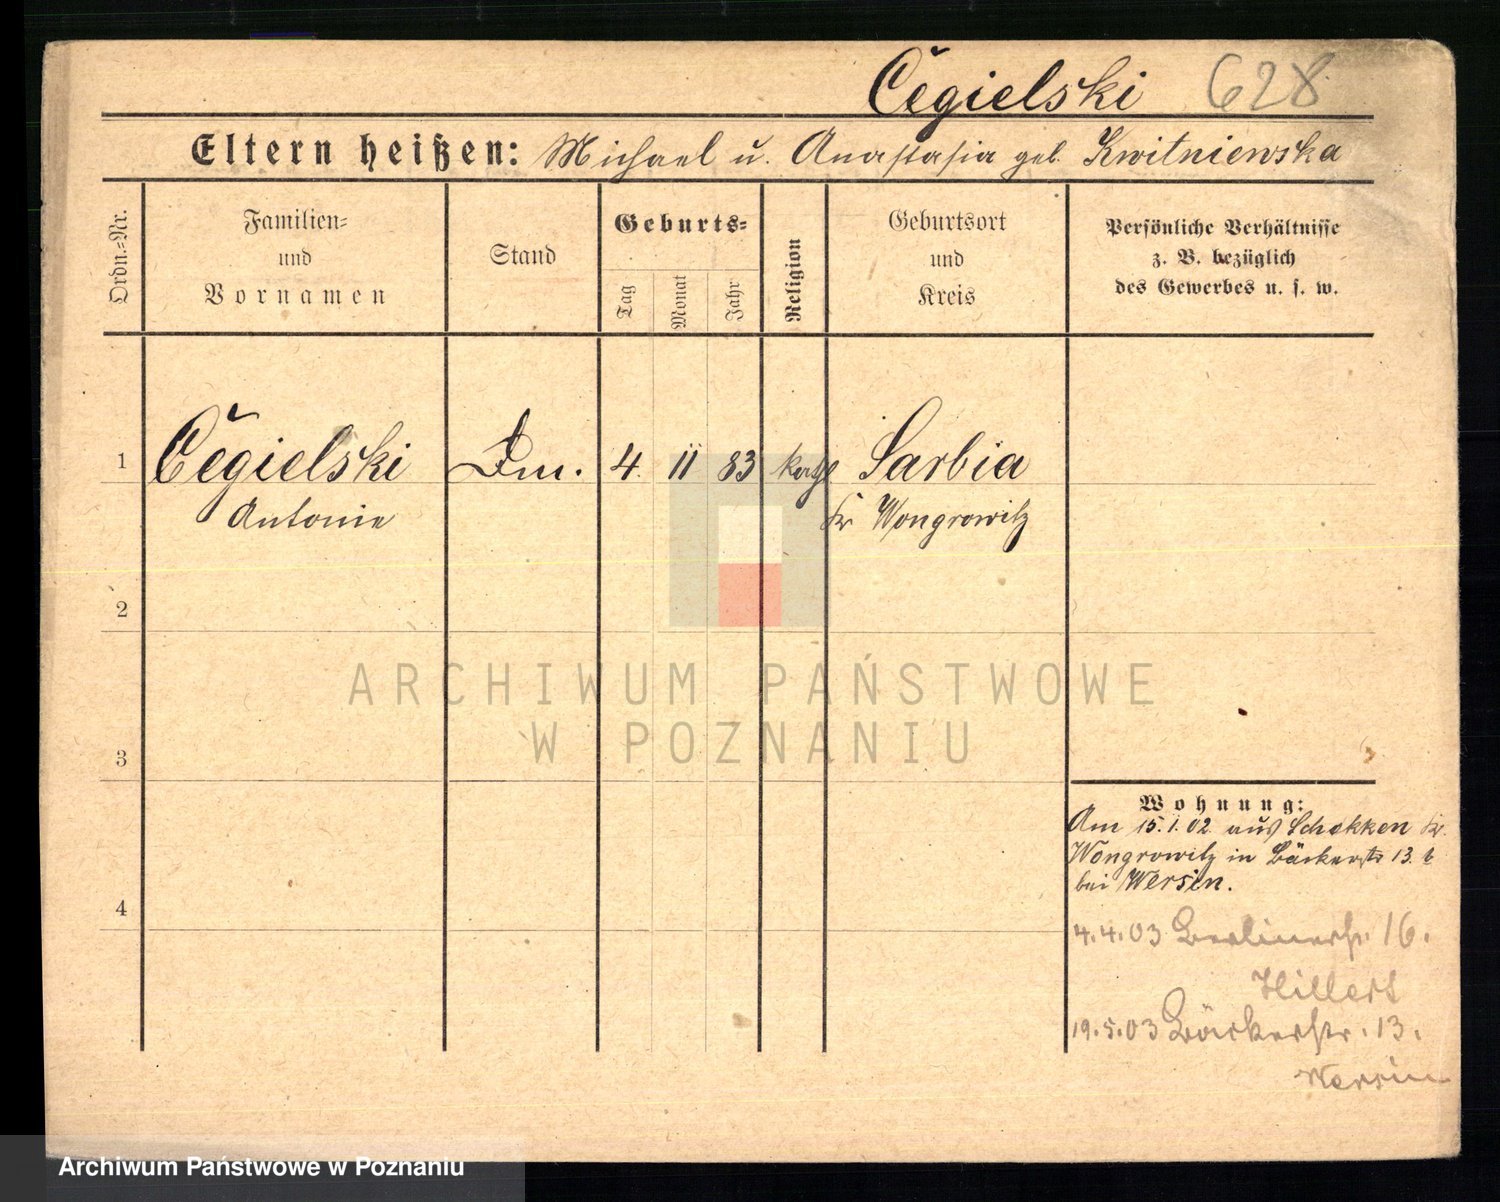 Čegielski 628
Eltern heißen: Michael u. Anastasia geb. Kwitniewska
Ordn.=Nr.
Familien=
und
Vornamen
Stand
Geburts=
Tag
Monat
Jahr
Religion
Geburtsort
und
Kreis
Persönliche Verhältnisse
z. B. bezüglich
des Gewerbes u. s. w.
1 Čegielski 4. 11 83 kath Sarbia
Antonie Kr Wongrowitz
2
3
4
Wohnung:
Am 15.1.02 aus Schokken Kr.
Wongrowitz in Bäckerstr 13. b
bei Wersin.
4.4.03 Berlinerstr. 16.
Hillert
19.5.03 Bäckerstr. 13.
Wersin
ARCHIWUM PAŃSTWOWE
W POZNANIU
Archiwum Państwowe w Poznaniu